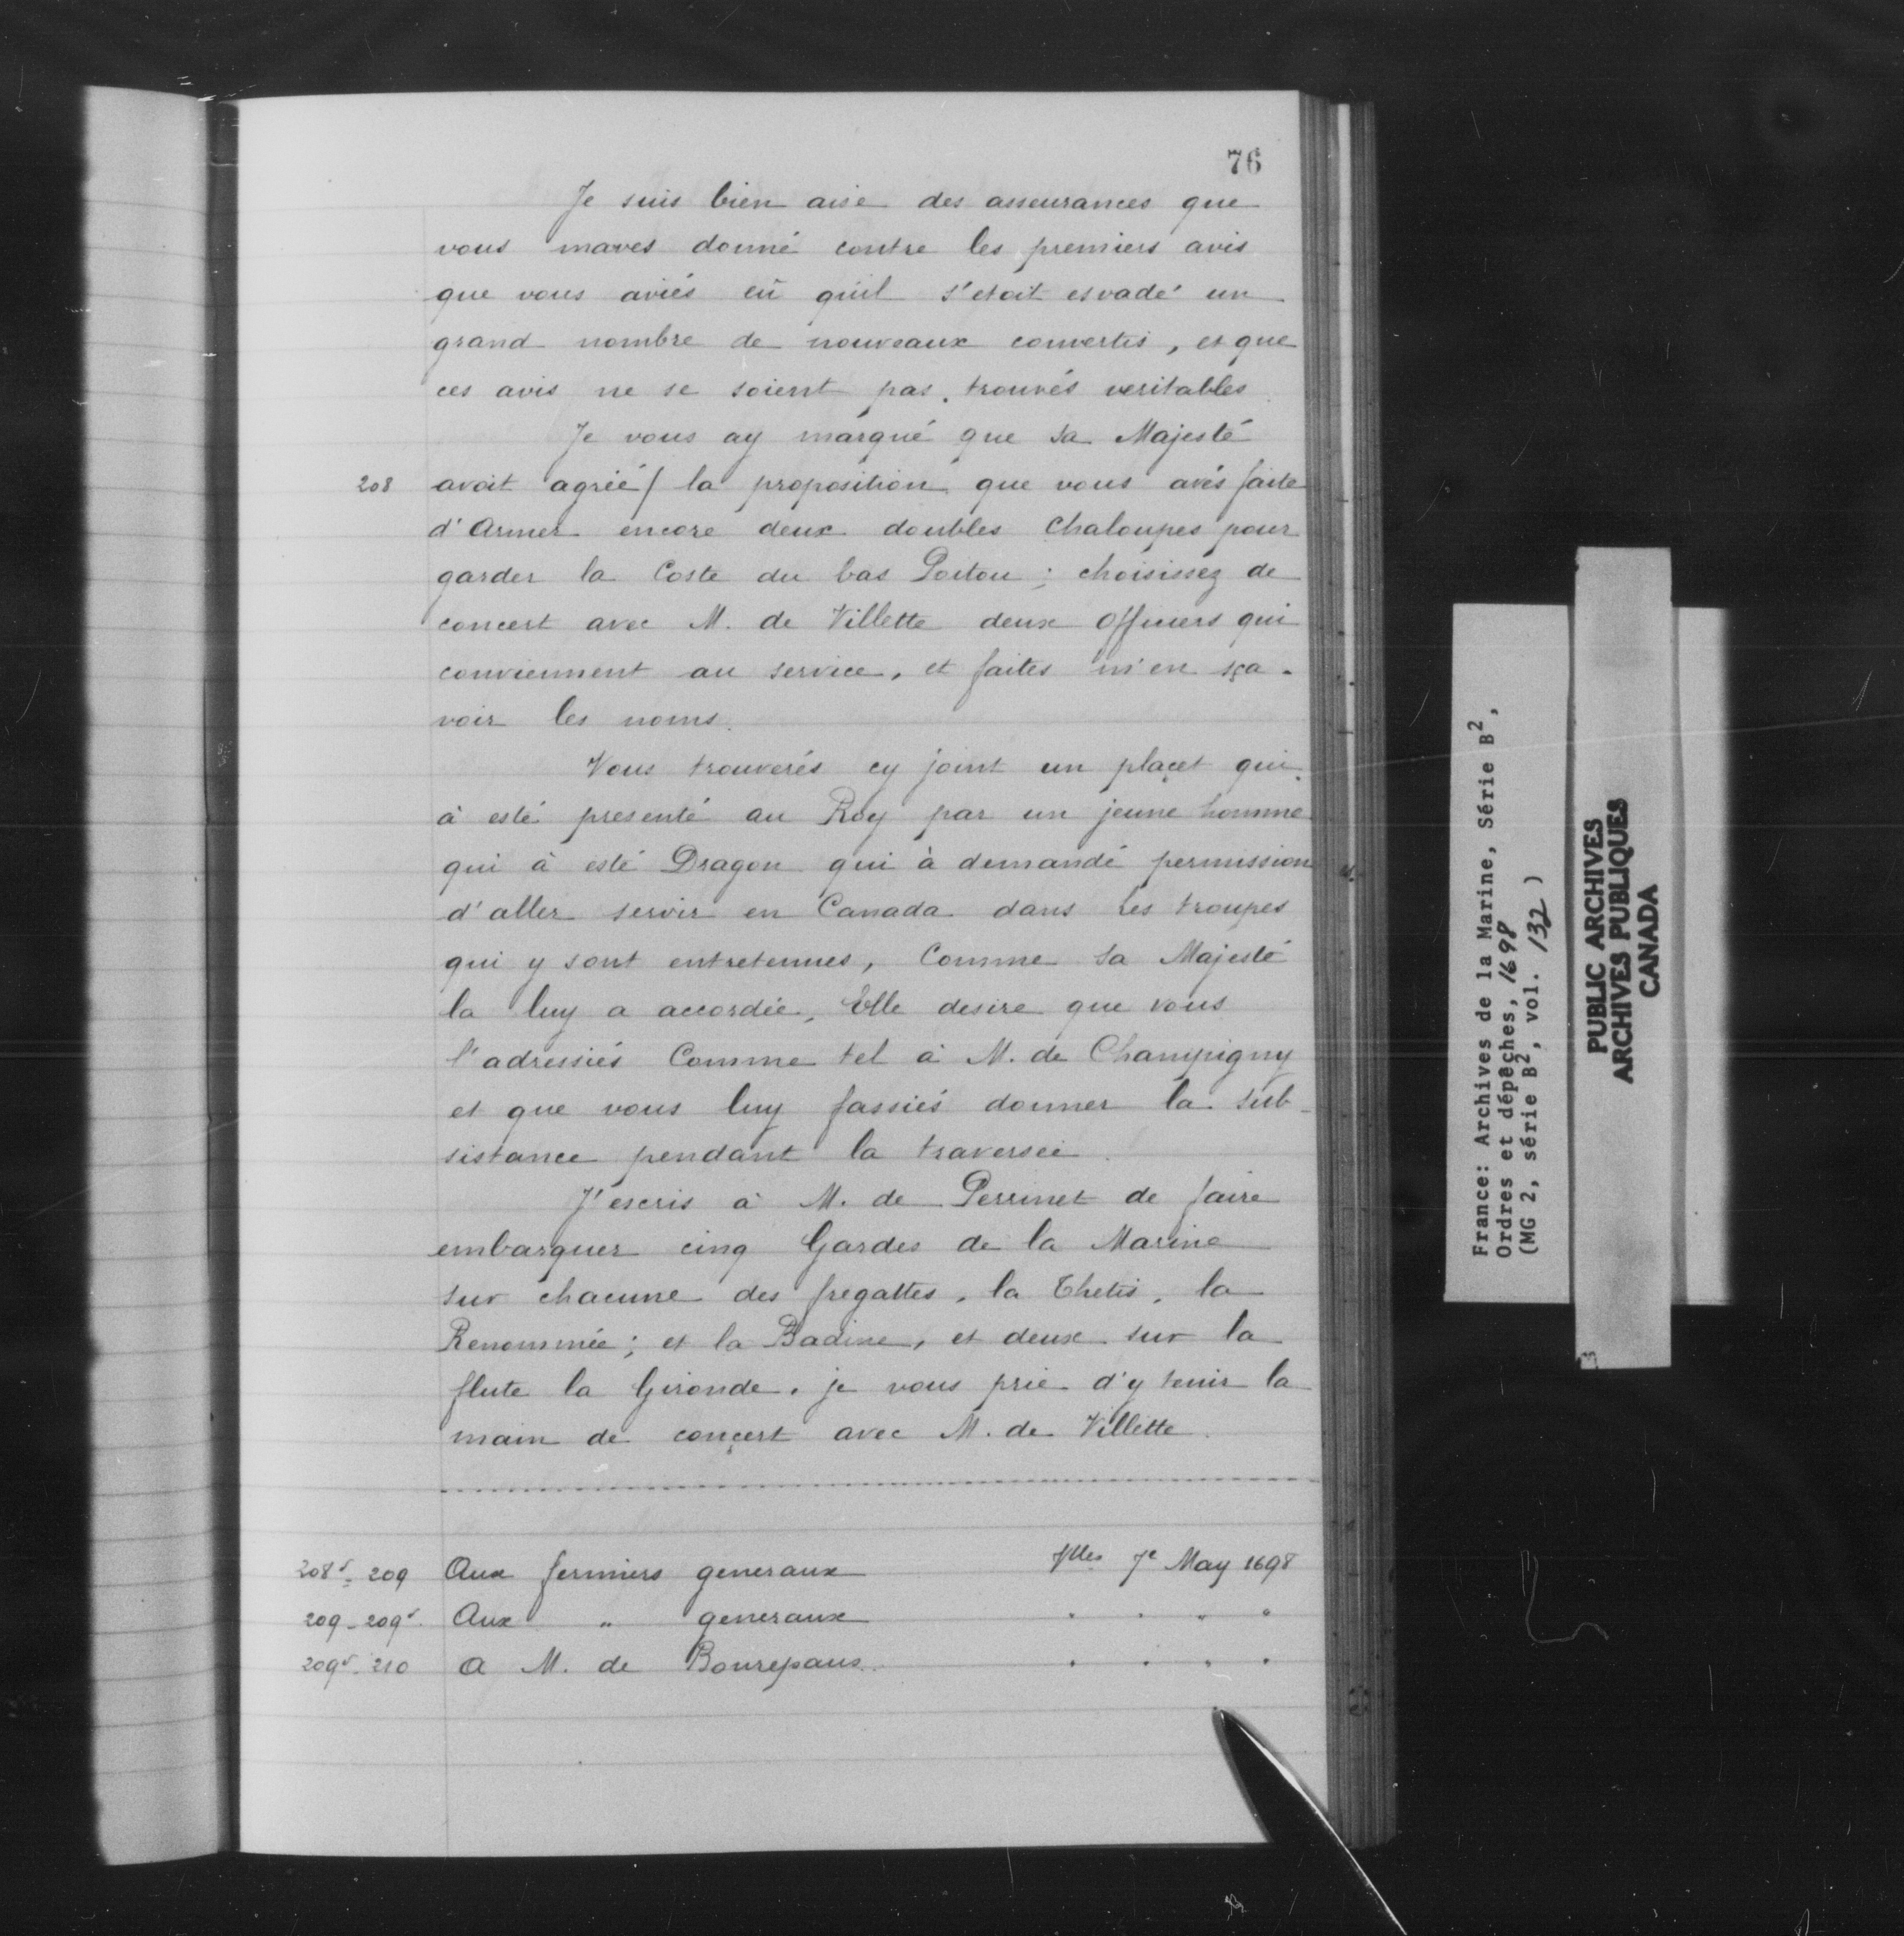 76
Je suis bien aise des asseurances que
vous maves donné contre les premiers avis
que vous aviés eü quil s'etoit esvadé un
grand nombre de nouveaux convertis, et que
ces avis ne se soient pas trouvés veritables
Je vous ay marqué que sa Majesté
208 avoit agréé / la proposition que vous avés faite
d'Armer encore deux doubles Chaloupes pour
garder la Coste du bas Poitou ; choisissez de
concert avec M. de Villette deux Officiers qui
conviennent au service, et faites m'en sça-
voir les noms.
Vous trouverés cy joint un placet qui
à esté presenté au Roy par un jeune homme
qui à esté Dragon qui à demandé permission
d'aller servir en Canada dans les troupes
qui y sont entretenues, Comme sa Majesté
la luy a accordée, Elle desire que vous
l'adressiés Comme tel à M. de Champigny
et que vous luy fassiés donner la sub-
sistance pendant la traversée.
J'escris à M. de Perrinet de faire
embarquer cinq Gardes de la Marine
sur chacune des fregattes, la Thetis, la
Renommée; et la Badine, et deux sur la
flute la Gironde. je vous prie d'y tenir la
main de concert avec M. de Villette.
208v - 209 Aux fermiers generaux Vlles 7e May 1698
209 - 209v. Aux " generaux " " " "
209v - 210 A M. de Bonrepaus. " " " "
France: Archives de la Marine, Série B2,
Ordres et dépêches, 1698
(MG 2, série B2, vol. 132)
PUBLIC ARCHIVES
ARCHIVES PUBLIQUES
CANADA